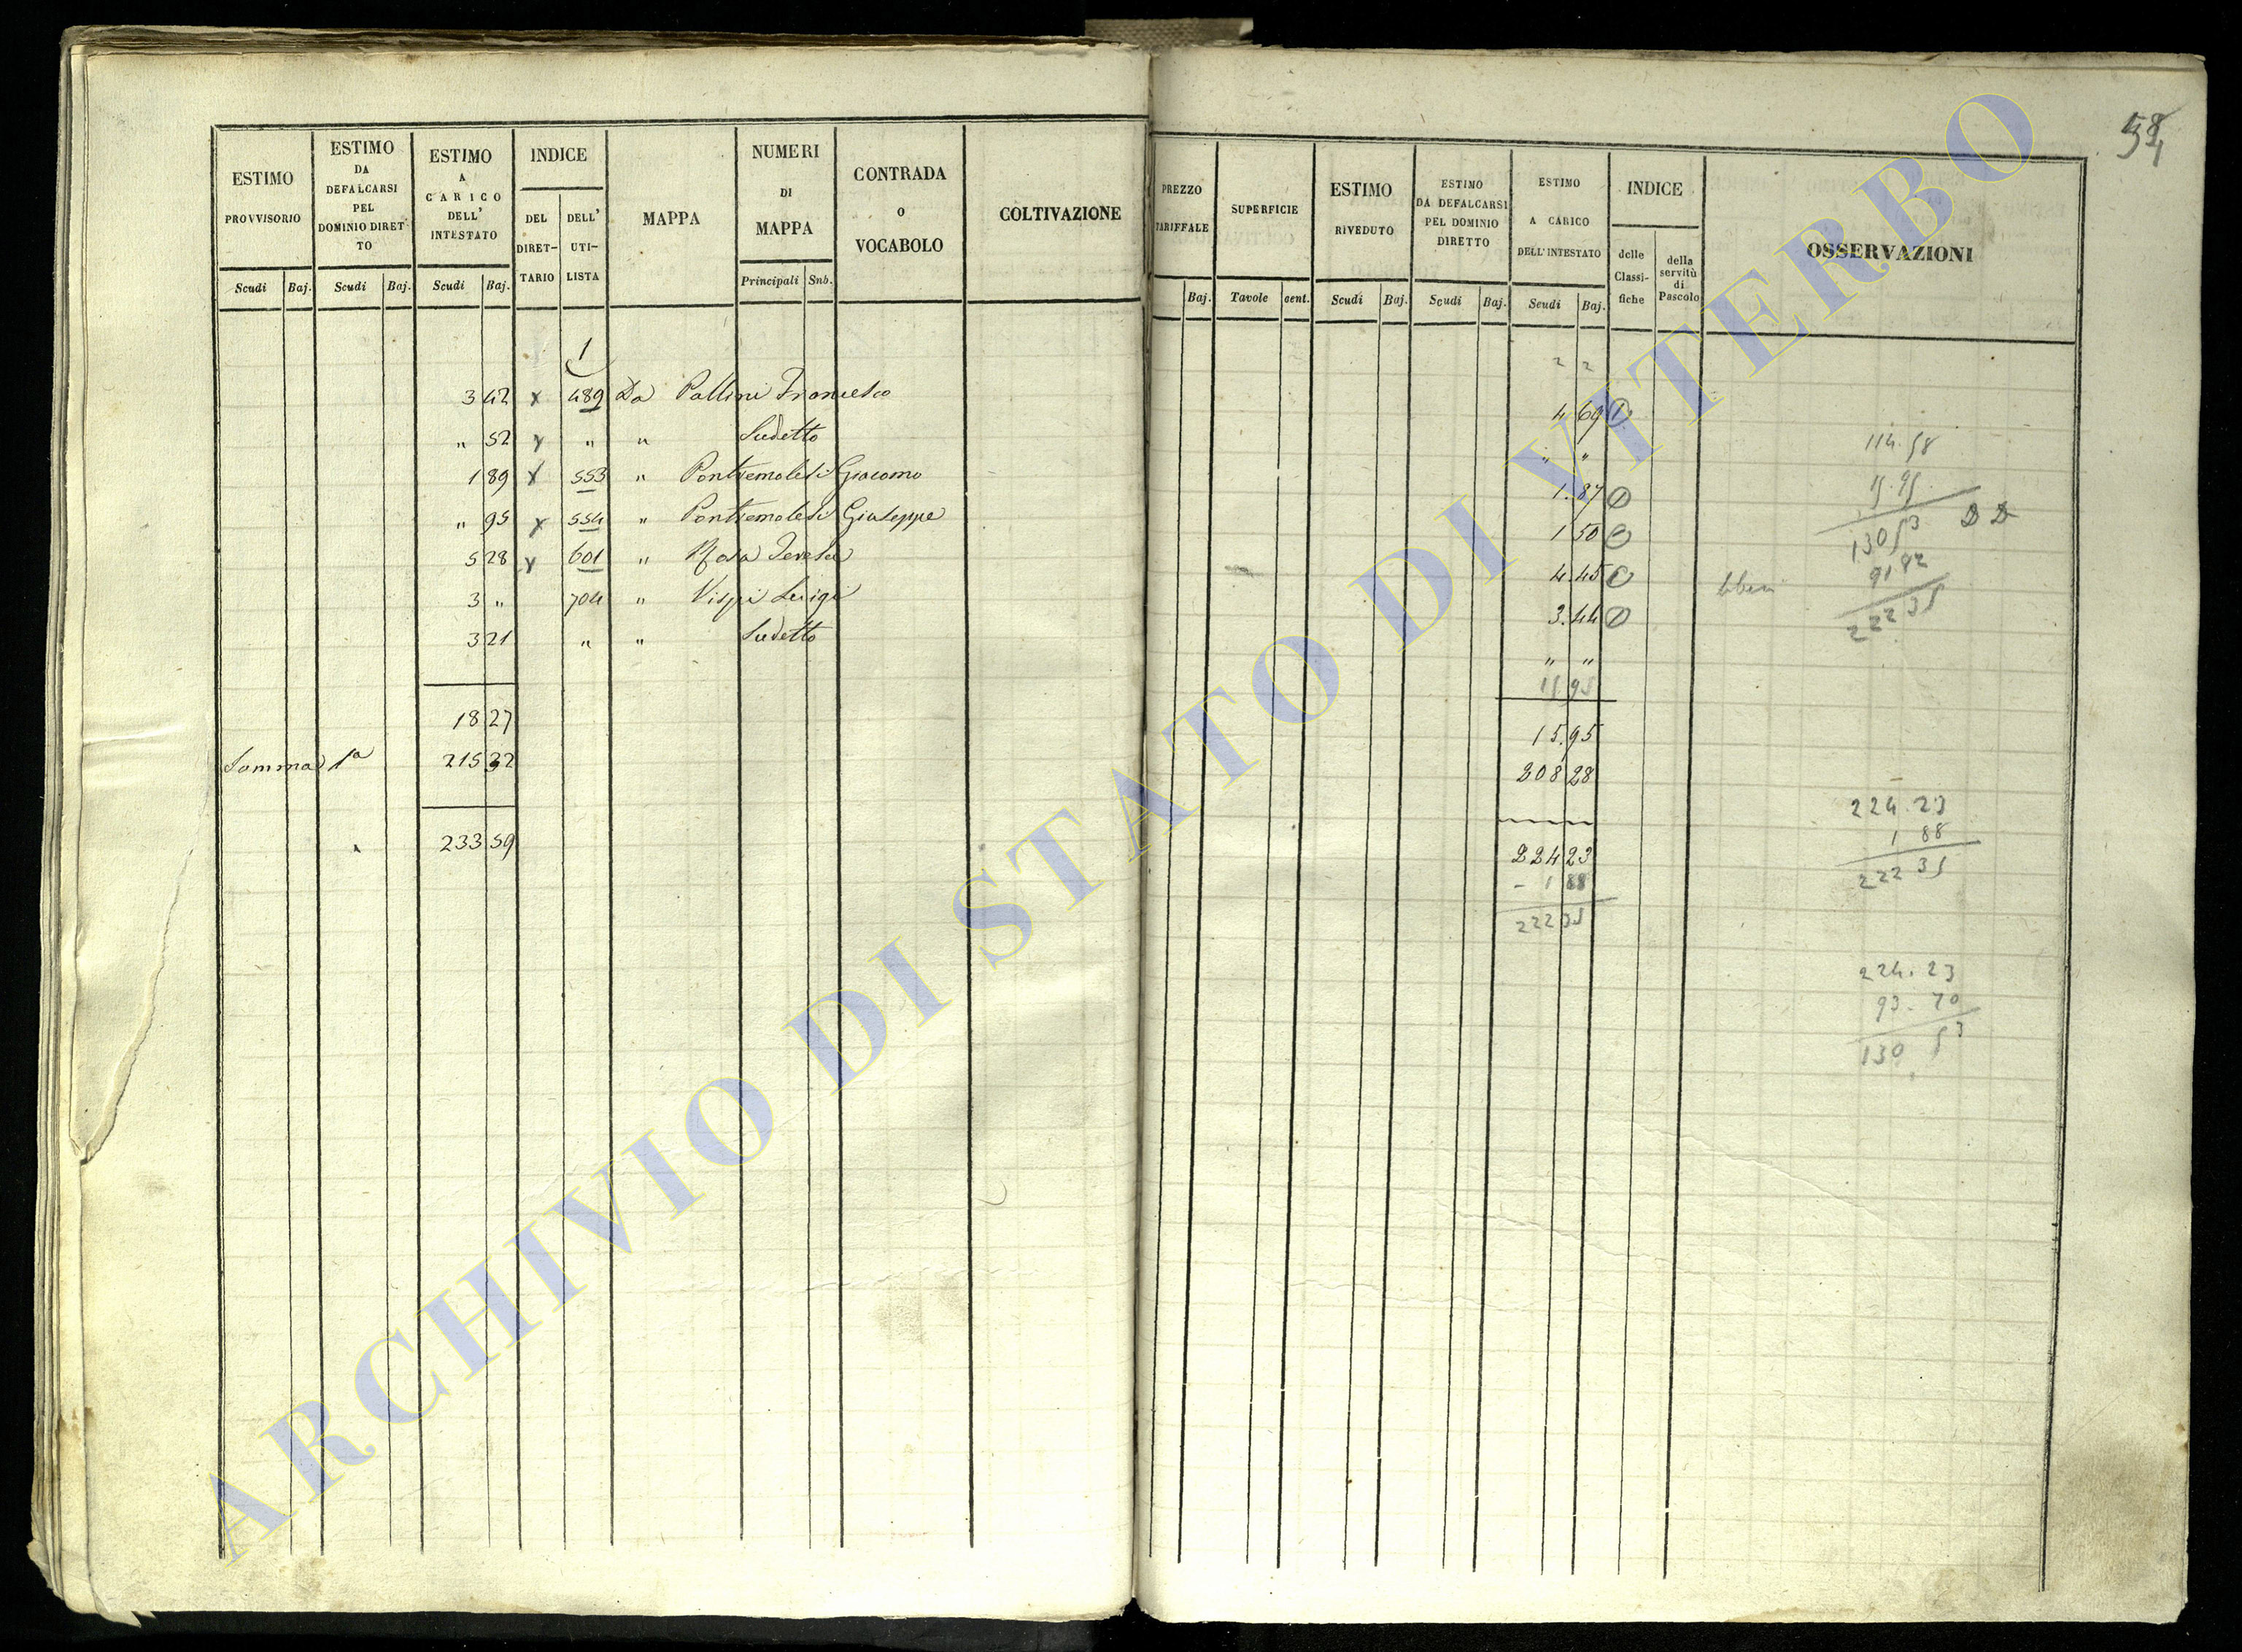 ESTIMO PROVVISORIO
Scudi Baj.
ESTIMO DA DEFALCARSI PEL DOMINIO DIRETTO
Scudi Baj.
ESTIMO A CARICO DELL' INTESTATO
Scudi Baj.
INDICE
DEL DIRET-TARIO
DELL' UTI-LISTA
MAPPA
NUMERI DI MAPPA
Principali Sub.
CONTRADA O VOCABOLO
COLTIVAZIONE
1
3 42 x 489 Da Pallini Francesco
" 52 x " " Sudetto
1 89 x 553 " Pontremolesi Giacomo
" 95 x 554 " Pontremolesi Giuseppe
5 28 x 601 " Rosa Teresa
3 " 704 " Vispi Luigi
3 21 " " Sudetto
18 27
Somma 1a 215 32
233 59
58
PREZZO TARIFFALE
Baj.
SUPERFICIE
Tavole cent.
ESTIMO RIVEDUTO
Scudi Baj.
ESTIMO DA DEFALCARSI PEL DOMINIO DIRETTO
Scudi Baj.
ESTIMO A CARICO DELL'INTESTATO
Scudi Baj.
INDICE
delle Classi-fiche
della servitù di Pascolo
OSSERVAZIONI
4 69 1
" "
1.87
1 50
4.45
3.44
" "
15 95
15.95
208 28
224 23
- 1 88
222 35
114.58
15.95
130 53
91 82
222 35
224.23
1 88
222 35
224.23
93.70
130 53
ARCHIVIO DI STATO DI VITERBO